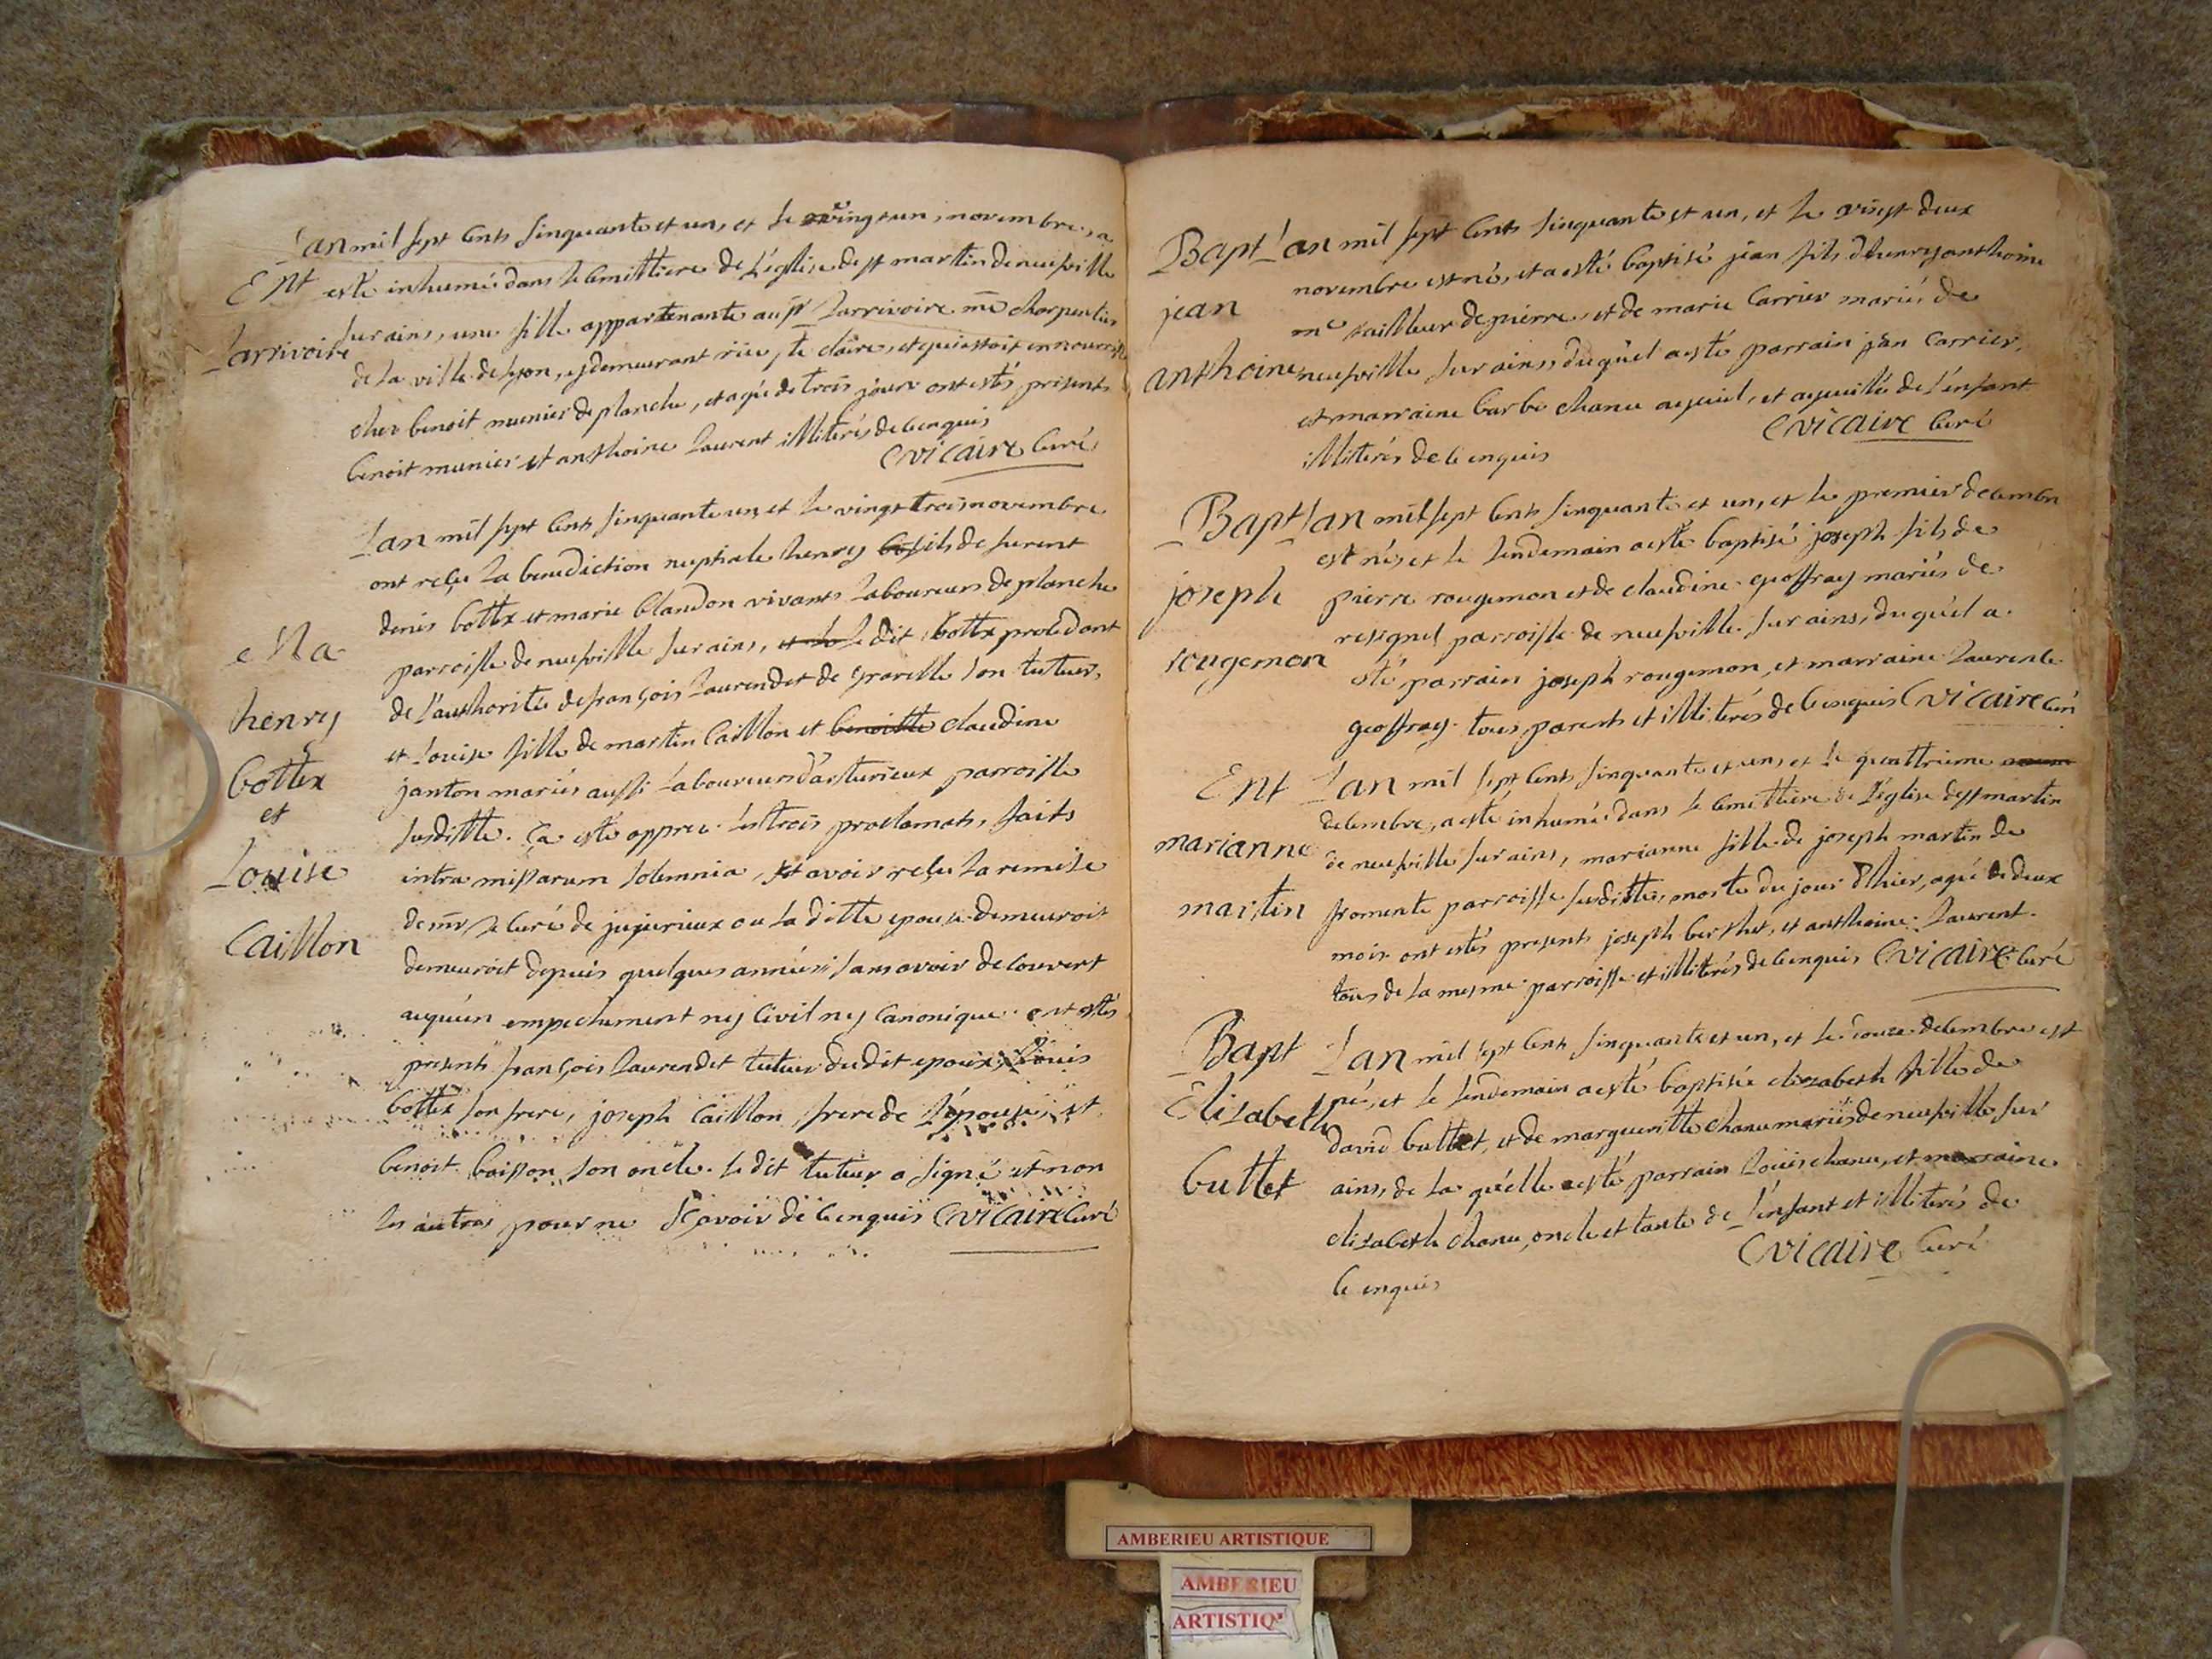 L'an mil sept cents sinquante et un, et le vingt un, novembre, a
Ent esté inhumé dans le cemittiere de l'église de st martin de neufville
Larrivoire sur ains, une fille appartenante au sr Larrivoire me charpentier
de la ville de lyon, y demeurant rüe, ste claire, et qui estoit en nourrisse
cher benoit munier de planche, et agé de trois jours ont estés, presents
benoit munier et anthoine laurent illiterés de ce enquis
C vicaire curé
L'an mil sept cents sinquante un, et le vingt trois novembre
ont reçu la benediction nuptiale henry fils de furent
denis bottex et marie blandon vivants laboureurs de planche
Ma parroisse de neufville sur ains, et le le dit bottex procedant
henry de l'authorité de françois laurendet de gravelle son tuteur,
et louise fille de martin Caillon et benoitte claudine
bottex janton mariés aussi laboureurs d'arturieux parroisse
et susditte. Ça esté apprez les trois proclamats, faits
Louise intra missarum solemnia, et avoir reçu la remise
Caillon de mr le curé de jujurieux ou la ditte epouse demeuroit
demeuroit depuis quelques années sans avoir decouvert
auquún empechement ny Civil ny Canonique. ont estés
presents françois laurendet tuteur dudit epoux, loüis
bottex son frere, joseph Caillon frere de l'épouse, et
benoit boisson son oncle. le dit tuteur a signé et non
les autres pour ne sçavoir de ce enquis C vicaire Curé
Bapt L'an mil sept cents sinquante et un, et le vingt deux
novembre est né, et a esté baptisé jean fils d'henry anthoine
jean me tailleur de pierre, et de marie Carrier mariés de
anthoine neufville sur ains, duquél a esté parrain jean Carrier,
et marraine barbe chanu ayeul, et ayeulle de l'enfant
illiterés de ce enquis C vicaire Curé
Bapt L'an mil sept cents sinquante et un, et le premier decembre
est né, et le lendemain a esté baptisé joseph fils de
joseph pierre rougemon et de claudine geoffray mariés de
resignel parroisse de neufville sur ains, duquél a
rougemon été, parrain joseph rougemon, et marraine laurence
geoffray. tous, parents et illiterés de ce enquis C vicaire curé
Ent L'an mil sept cents sinquante et un, et le quattrieme
decembre, a esté inhumé dans le cemittiere de l'église de st martin
marianne de neufville sur ains, marianne fille de joseph martin de
martin fromente parroisse susditte, morte du jour d'hier, agé de deux
mois ont estés presents joseph berthet, et anthoine laurent
tous de la mesme parroisse et illiterés de ce enquis C vicaire curé
Bapt L'an mil sept cents sinquante et un, et le douze decembre est
né, et le lendemain a esté baptisée elizabeth fille de
Elizabeth david buttet, et de margueritte chanu mariés de neufville sur
buttet ains, de la quélle a esté parrain loüis chanu, et marraine
elizabeth chanu, oncle et tante de l'énfant et illiterés de
ce enquis C vicaire Curé
AMBERIEU ARTISTIQUE
AMBERIEU
ARTISTIQ